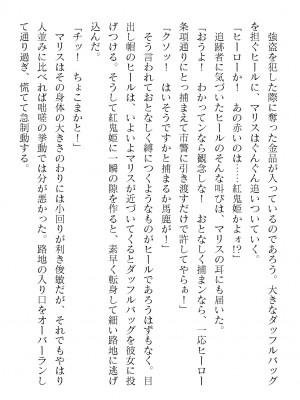 強盗を犯した際に奪った金品が入っているのであろう。大きなダッフルバッグ
を担ぐヒールに、マリスはぐんぐん追いついていく。
「ヒーローか！　あの赤いのは……紅鬼姫かよォ!?」
追跡者に気づいたヒールのそんな叫びは、マリスの耳にも届いた。
「おうよ！　わかってンなら観念しな！　おとなしく捕まンなら、一応ヒーロー
条項通りにとっ捕まえて市警に引き渡すだけで許してやらぁ！」
「クソッ！　はいそうですかと捕まるか馬鹿が！」
そう言われておとなしく縛につくようなものがヒールであろうはずもなく。目
出し帽のヒールは、いよいよマリスが近づいてくるとダッフルバッグを彼女に投
げつける。そうして紅鬼姫に一瞬の隙を作ると、素早く転身して細い路地に逃げ
込んだ。
「チッ！　ちょこまかと！」
マリスはその身体の大きさのわりには小回りが利き俊敏だが、それでもやはり
人並みに比べれば咄嗟の挙動では分が悪かった。路地の入り口をオーバーランし
て通り過ぎ、慌てて急制動する。